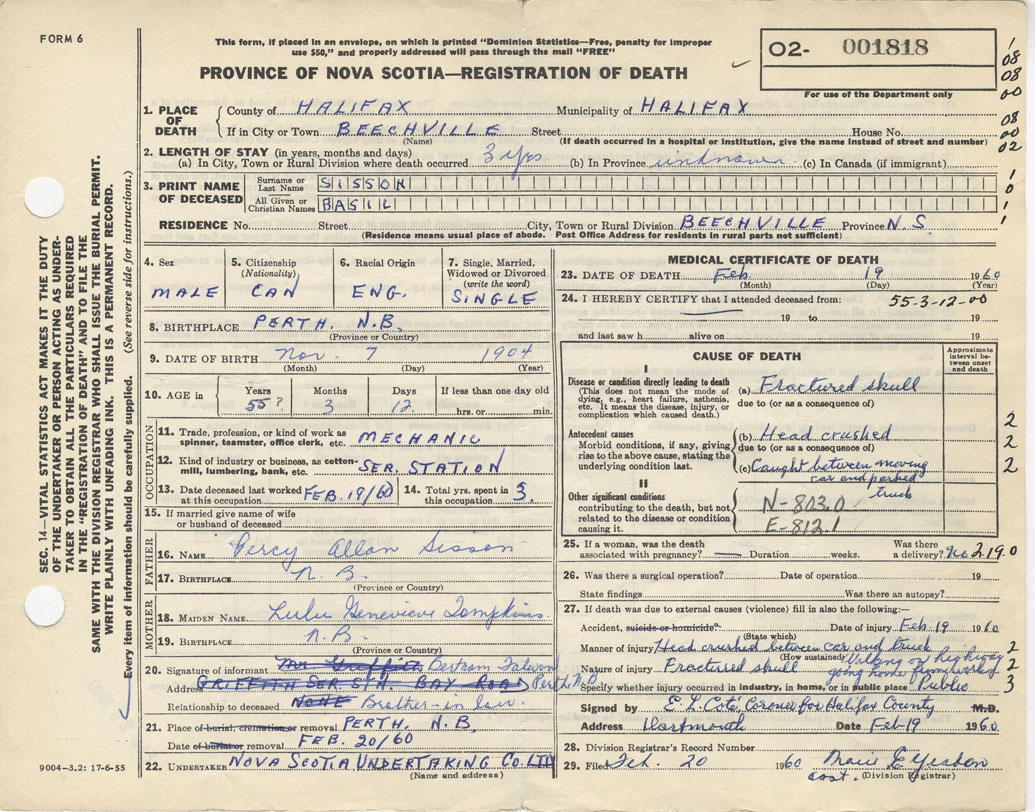 FORM 6
This form, if placed in an envelope, on which is printed "Dominion Statistics—Free, penalty for improper
use $50," and properly addressed will pass through the mail "FREE"
PROVINCE OF NOVA SCOTIA—REGISTRATION OF DEATH
O2- 001818
For use of the Department only
1
08
08
00
08
00
02
1
0
1
1. PLACE OF DEATH
County of HALIFAX Municipality of HALIFAX
If in City or Town BEECHVILLE Street House No.
(Name) (If death occurred in a hospital or institution, give the name instead of street and number)
2. LENGTH OF STAY (in years, months and days)
(a) In City, Town or Rural Division where death occurred 3 yrs (b) In Province unknown (c) In Canada (if immigrant)
3. PRINT NAME OF DECEASED
Surname or Last Name SISSON
All Given or Christian Names BASIL
RESIDENCE No. Street City, Town or Rural Division BEECHVILLE Province N.S.
(Residence means usual place of abode. Post Office Address for residents in rural parts not sufficient)
SEC. 14—VITAL STATISTICS ACT MAKES IT THE DUTY
OF THE UNDERTAKER OR PERSON ACTING AS UNDER-
TAKER TO OBTAIN ALL THE PARTICULARS REQUIRED
IN THE "REGISTRATION OF DEATH" AND TO FILE THE
SAME WITH THE DIVISION REGISTRAR WHO SHALL ISSUE THE BURIAL PERMIT.
WRITE PLAINLY WITH UNFADING INK. THIS IS A PERMANENT RECORD.
Every item of information should be carefully supplied. (See reverse side for instructions.)
4. Sex MALE
5. Citizenship (Nationality) CAN
6. Racial Origin ENG.
7. Single, Married, Widowed or Divorced (write the word) SINGLE
8. BIRTHPLACE PERTH. N.B.
(Province or Country)
9. DATE OF BIRTH Nov. 7 1904
(Month) (Day) (Year)
10. AGE in Years 55? Months 3 Days 12 If less than one day old hrs. or min.
OCCUPATION
11. Trade, profession, or kind of work as
spinner, teamster, office clerk, etc. MECHANIC
12. Kind of industry or business, as cotton-
mill, lumbering, bank, etc. SER. STATION
13. Date deceased last worked at this occupation FEB. 19/60
14. Total yrs. spent in this occupation 3
15. If married give name of wife
or husband of deceased
FATHER
16. NAME Percy Allan Sisson
17. BIRTHPLACE N.B.
(Province or Country)
MOTHER
18. MAIDEN NAME Lulu Genevieve Tompkins
19. BIRTHPLACE N.B.
(Province or Country)
20. Signature of informant Mr Griffith Bertram
Address GRIFFITH SER STN. BAY ROAD Perth, N.B.
Relationship to deceased NONE Brother-in law.
21. Place of burial, cremation or removal PERTH. N.B.
Date of burial or removal FEB. 20/60
22. UNDERTAKER NOVA SCOTIA UNDERTAKING CO. LTD
(Name and address)
9004—3.2: 17-6-55
MEDICAL CERTIFICATE OF DEATH
23. DATE OF DEATH Feb 19 1960
(Month) (Day) (Year)
24. I HEREBY CERTIFY that I attended deceased from: 55-3-12-00
19 to 19
and last saw h alive on 19
CAUSE OF DEATH
Approximate interval between onset and death
I
Disease or condition directly leading to death
(This does not mean the mode of
dying, e.g., heart failure, asthenia,
etc. It means the disease, injury, or
complication which caused death.)
(a) Fractured skull
due to (or as a consequence of)
Antecedent causes
Morbid conditions, if any, giving
rise to the above cause, stating the
underlying condition last.
(b) Head crushed
due to (or as a consequence of)
(c) Caught between moving
car and parked
truck
2
2
2
II
Other significant conditions
contributing to the death, but not
related to the disease or condition
causing it.
N-803.0
E-812.1
25. If a woman, was the death associated with pregnancy? — Duration weeks. Was there a delivery? No 219.0
26. Was there a surgical operation? Date of operation 19
State findings Was there an autopsy?
27. If death was due to external causes (violence) fill in also the following:—
Accident, suicide or homicide? Date of injury Feb-19 1960
(State which)
Manner of injury Head crushed between car and truck 2
(How sustained) Walking on highway
Nature of injury Fractured skull going home from work 2
Specify whether injury occurred in industry, in home, or in public place Public 3
Signed by E. L. Cote, Coroner for Halifax County M.D.
Address Dartmouth Date Feb-19 1960
28. Division Registrar's Record Number
29. Filed Feb. 20 1960
(Division Registrar)